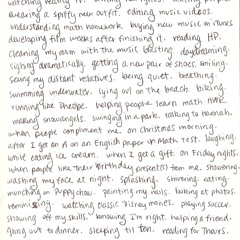 wearing a spiffy new outfit. editing music videos.
understanding math homework. buying new music on iTunes
developing film weeks after finishing it. reading HP.
cleaning my room with the music blasting. daydreaming.
sighing dramatically. getting a new pair of shoes. smiling.
seeing my distant relatives. being quiet. breathing.
swimming underwater. lying owl on the beach. biking.
running like Phoebe. helping people learn math HW.
making snowangels. swinging in a park. talking to Hannah.
when people compliment me. on christmas morning.
after I get an A on an English paper or Math test. laughing.
while eating ice cream. when I get a gift. on Friday nights.
when people like their birthday present(s) from me. showering.
washing my face at night. splashing. shivering. eating.
munching on Puppychow. painting my nails. looking at photos.
reminiscing. watching classic Disney movies. playing soccer.
showing off my skills. knowing I'm right. helping a friend.
going out to dinner. sleeping til ten. reading for hours.